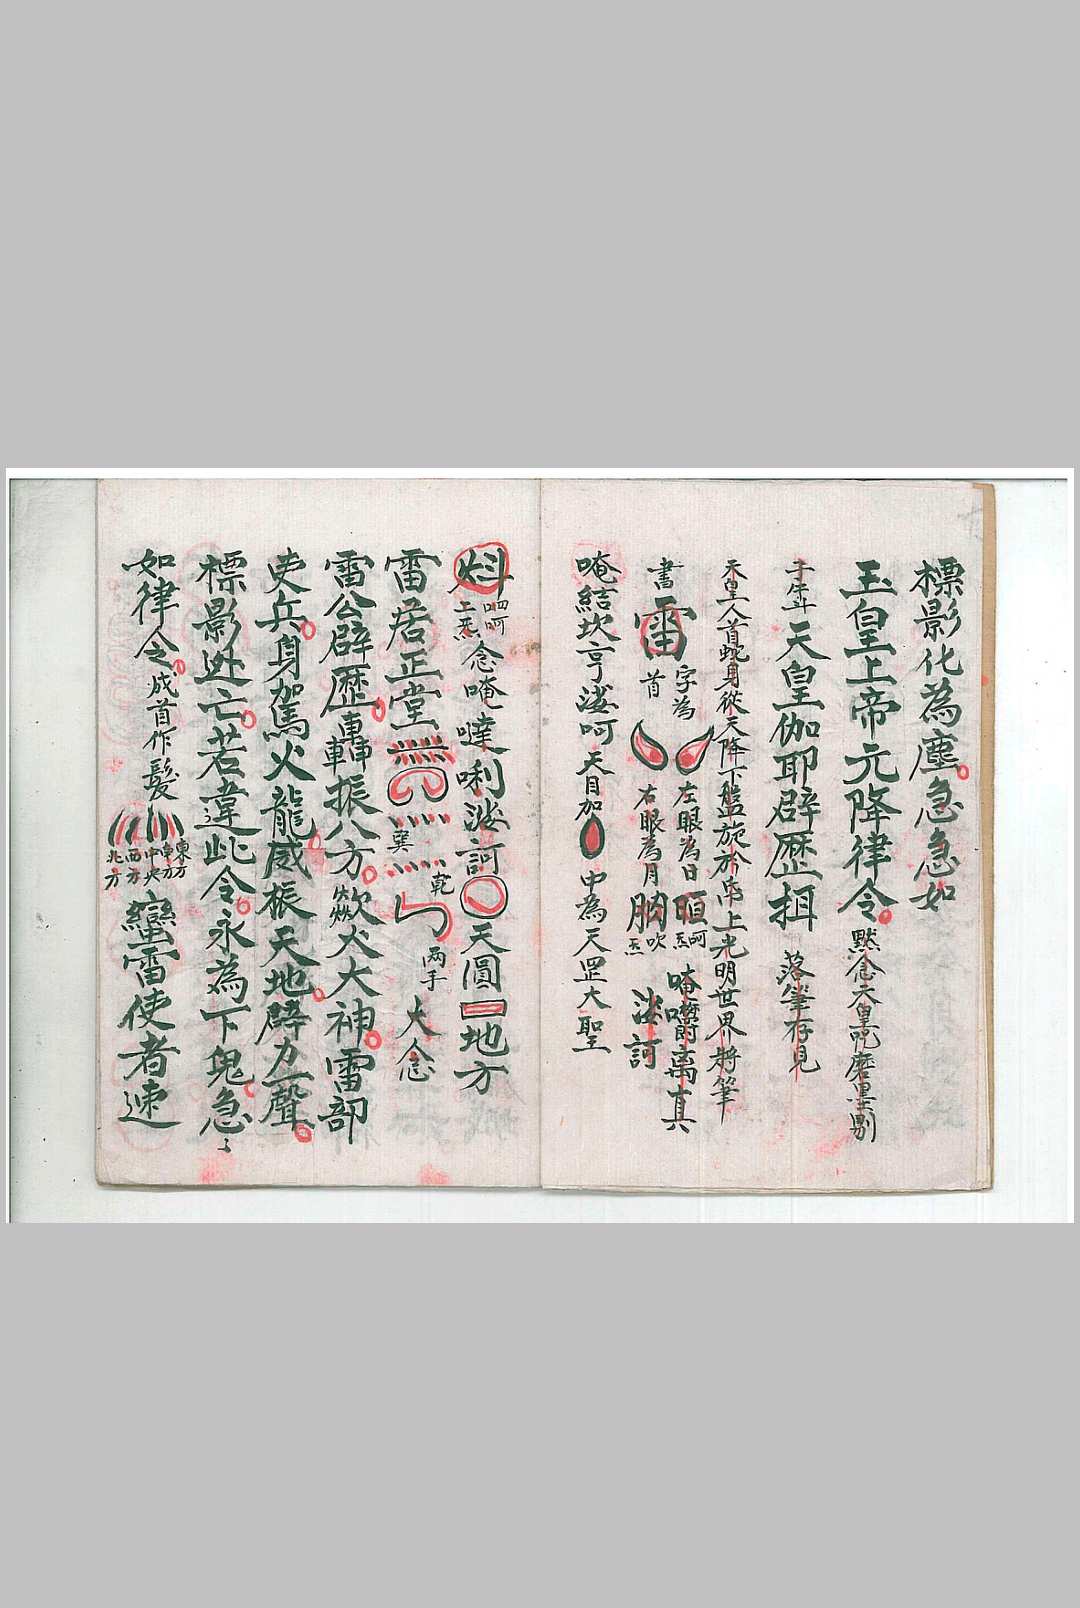 標影化為塵急急如
玉皇上帝元降律令默念天皇咒磨墨剔
天皇伽耶霹歷 落筆存見
天皇人首蛇身從天降下盤旋於 上光明世界將筆
書雷字為首 左眼為日 呵炁 唵 离真
右眼為月 吹炁 訶
唵結坎亨 呵天目加 中為天罡大聖
呬呵二炁念唵噠唎 訶 天圓 地方
雷居正堂 巽 乾 两手 大念
雷公辟歷轟轉振八方 火大神雷部
吏兵身駕火龍威振天地辟力一聲
標影迯亡若違此令永為下鬼急ミ
如律令成首作髮 東方 南方 中央 西方 北方 蠻雷使者速